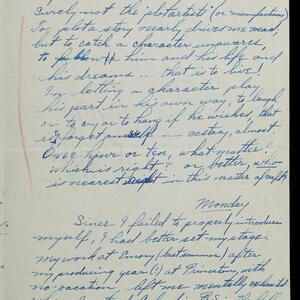 Surely not the plot artist (or manufacturer)
To plot a story nearly drives me mad,
but to catch a character unawares,
to follow him and his life and
his dreams — that is to live!
In letting a character play
his part in his own way, to laugh
or to cry or to hang if he wishes, that
is forget — ecstacy, almost.
One hour or ten, what matter:
which is right? or, better, who
is nearest right in this matter of
Monday
Since I failed to properly introduce
myself, I had better set my stage.
my work at Emory (last summer) after
my producing year (!) at Princeton, with
no vacation, left me mentally exhausted